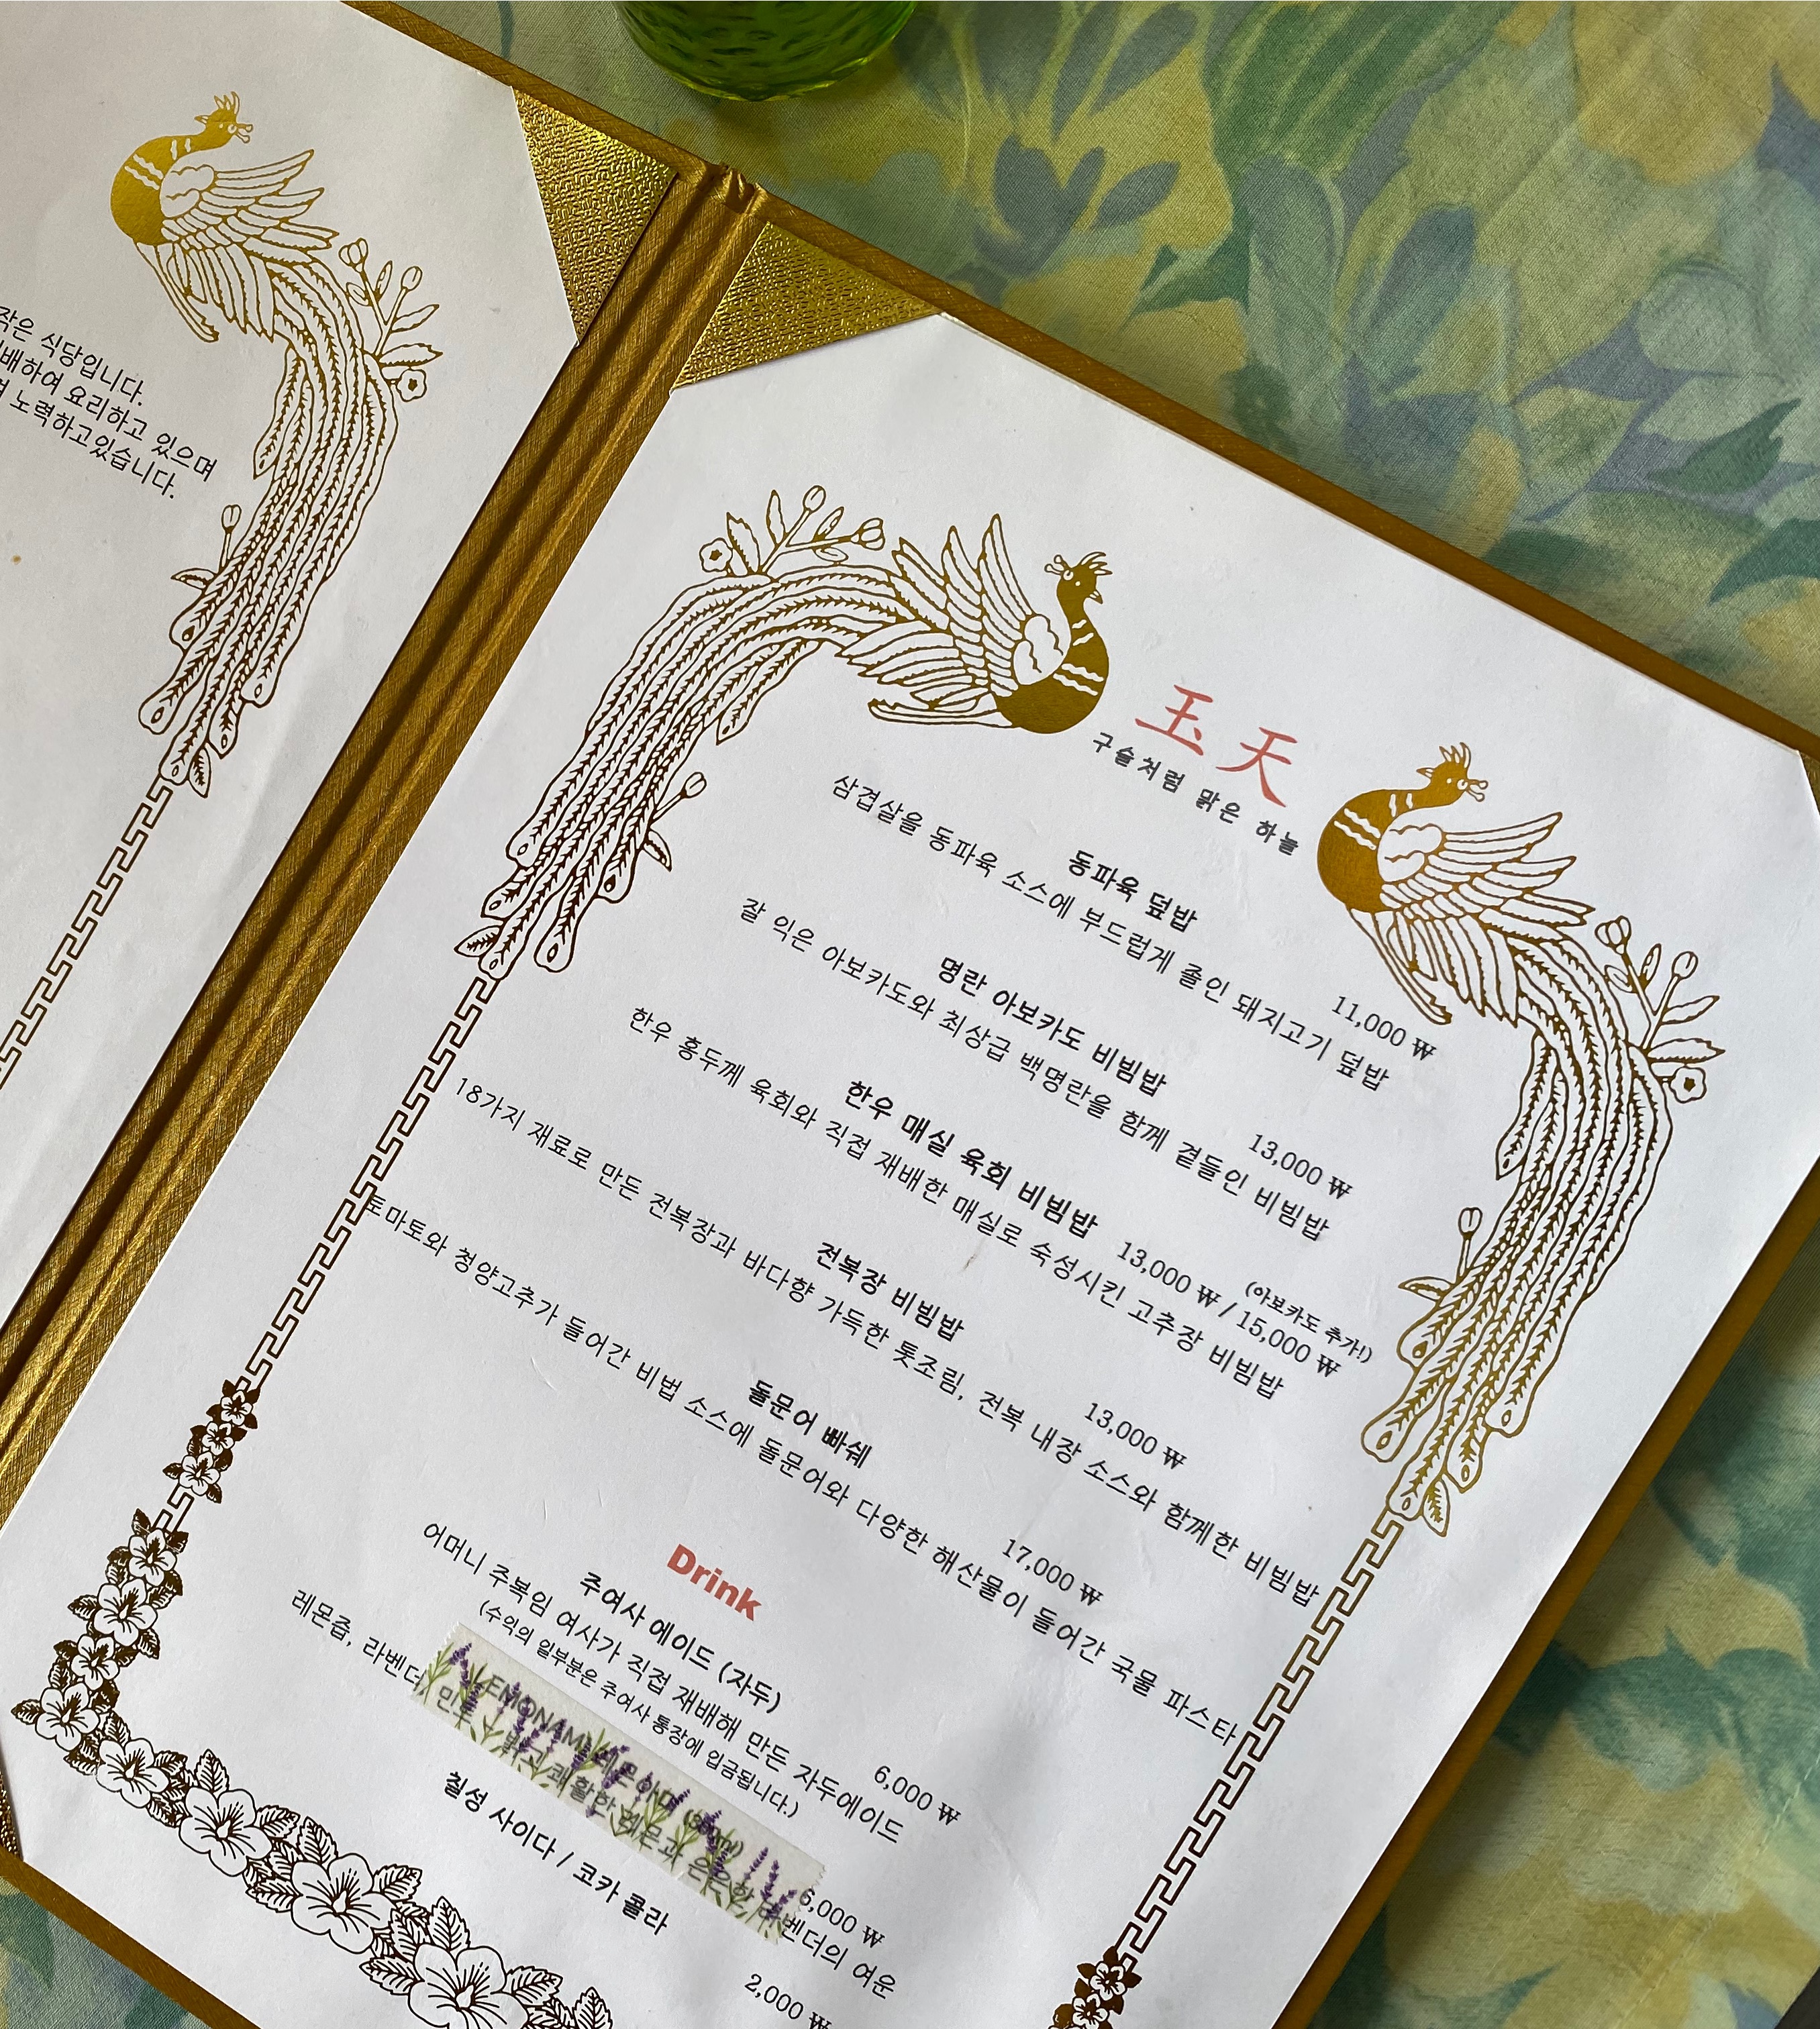 작은 식당입니다.
배하여 요리하고 있으며
노력하고있습니다.
玉天
구슬처럼 맑은 하늘
동파육 덮밥 11,000 ₩
삼겹살을 동파육 소스에 부드럽게 졸인 돼지고기 덮밥
명란 아보카도 비빔밥 13,000 ₩
잘 익은 아보카도와 최상급 백명란을 함께 곁들인 비빔밥
(아보카도 추가!)
한우 매실 육회 비빔밥 13,000 ₩ / 15,000 ₩
한우 홍두께 육회와 직접 재배한 매실로 숙성시킨 고추장 비빔밥
전복장 비빔밥 13,000 ₩
18가지 재료로 만든 전복장과 바다향 가득한 톳조림, 전복 내장 소스와 함께한 비빔밥
돌문어 빠쉐 17,000 ₩
토마토와 청양고추가 들어간 비법 소스에 돌문어와 다양한 해산물이 들어간 국물 파스타
Drink
주여사 에이드 (자두) 6,000 ₩
어머니 주복임 여사가 직접 재배해 만든 자두에이드
(수익의 일부분은 주여사 통장에 입금됩니다.)
LEMONAMI 레몬아미 6,000 ₩
레몬즙, 라벤더, 민트 밝고 쾌활한 레몬과 은은한 라벤더의 여운
칠성 사이다 / 코카 콜라 2,000 ₩